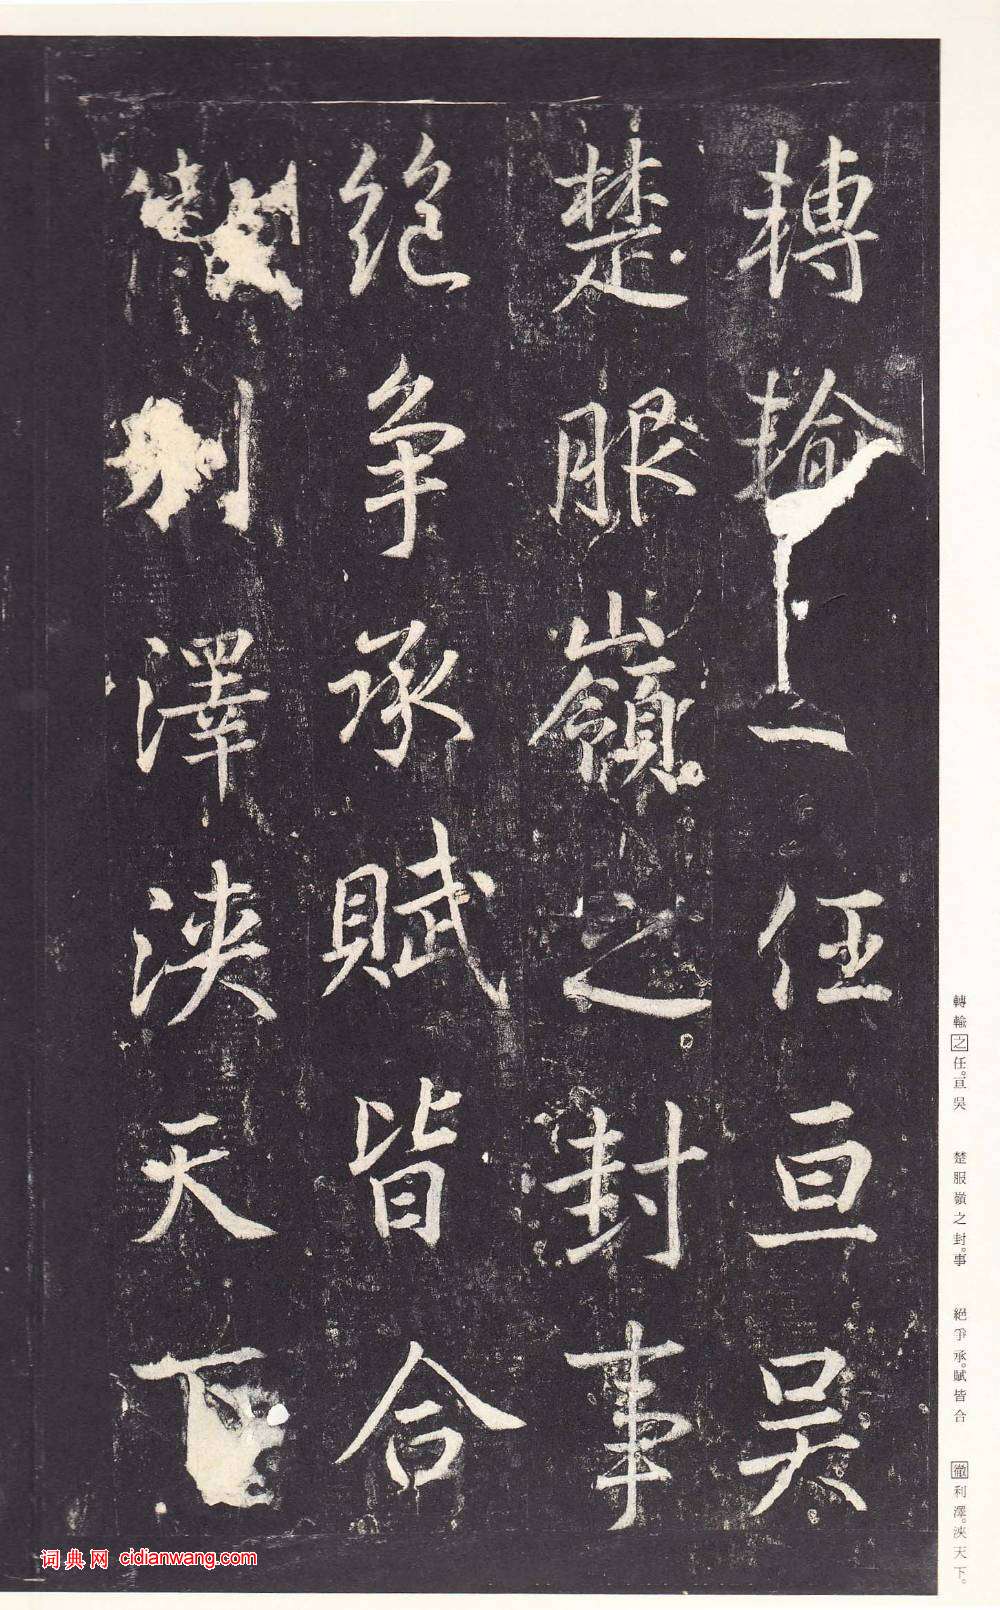 轉輸之任亘吳
楚服嶺之封事
絕爭承賦皆合
徹利澤浹天下
轉輸之任。亘吳 楚服嶺之封。事 絕爭承。賦皆合 徹利澤。浹天下。
词典网 cidianwang.com